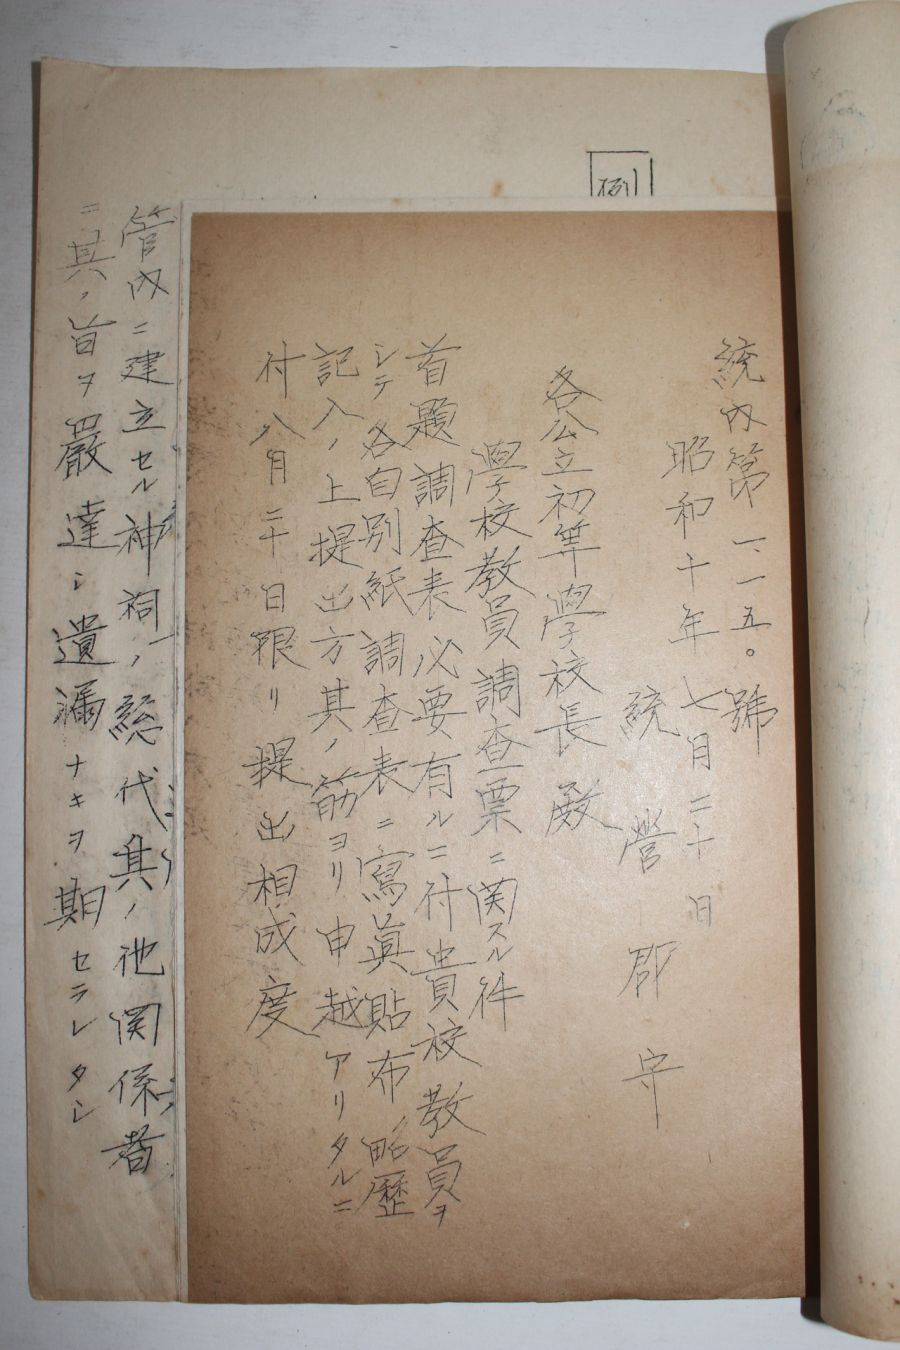 例
統內第一、一五。號
昭和十年七月二十日
統營郡守
各公立初等學校長殿
學校教員調査票ニ関スル件
首題調査表必要有ルニ付貴校教員ヲ
シテ各自別紙調査表ニ寫眞貼布略歷
記入ノ上提出方其ノ筋ヨリ申越アリタルニ
付八月二十日限リ提出相成度
管內ニ建立セル神祠ノ総代其ノ他関係者
ニ其ノ旨ヲ嚴達シ遺漏ナキヲ期セラレタシ